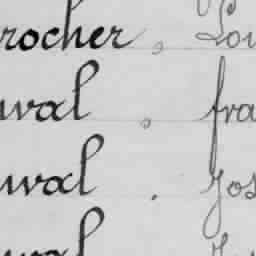 rocher, Lou
uval, fra
uval. Jos
uval